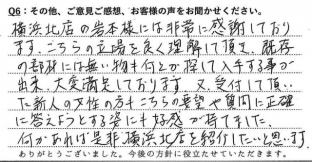 Q6：その他、ご意見ご感想、お客様の声をお聞かせください。
横浜北店の岩本様には非常に感謝しており
ます。こちらの立場を良く理解して頂き、既存
の部材には無い物も何とか探して入手する事が
出来、大変満足しております。又、受付して頂い
た新人の女性の方もこちらの要望や質問に正確
に答えようとする姿にも好感が持てました。
何かあれば是非横浜北店を紹介したいと思います
ありがとうございました。今後の方針に役立たせていただきます。